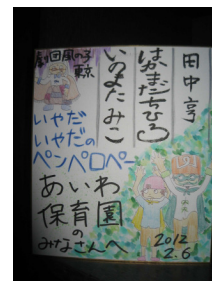 田中亨
はかまだちひろ
いのまたみこ
劇団風の子
東京
いやだ
いやだの
ペンペロペー
あいわ
保育園
の
みなさんへ
2012
2.6